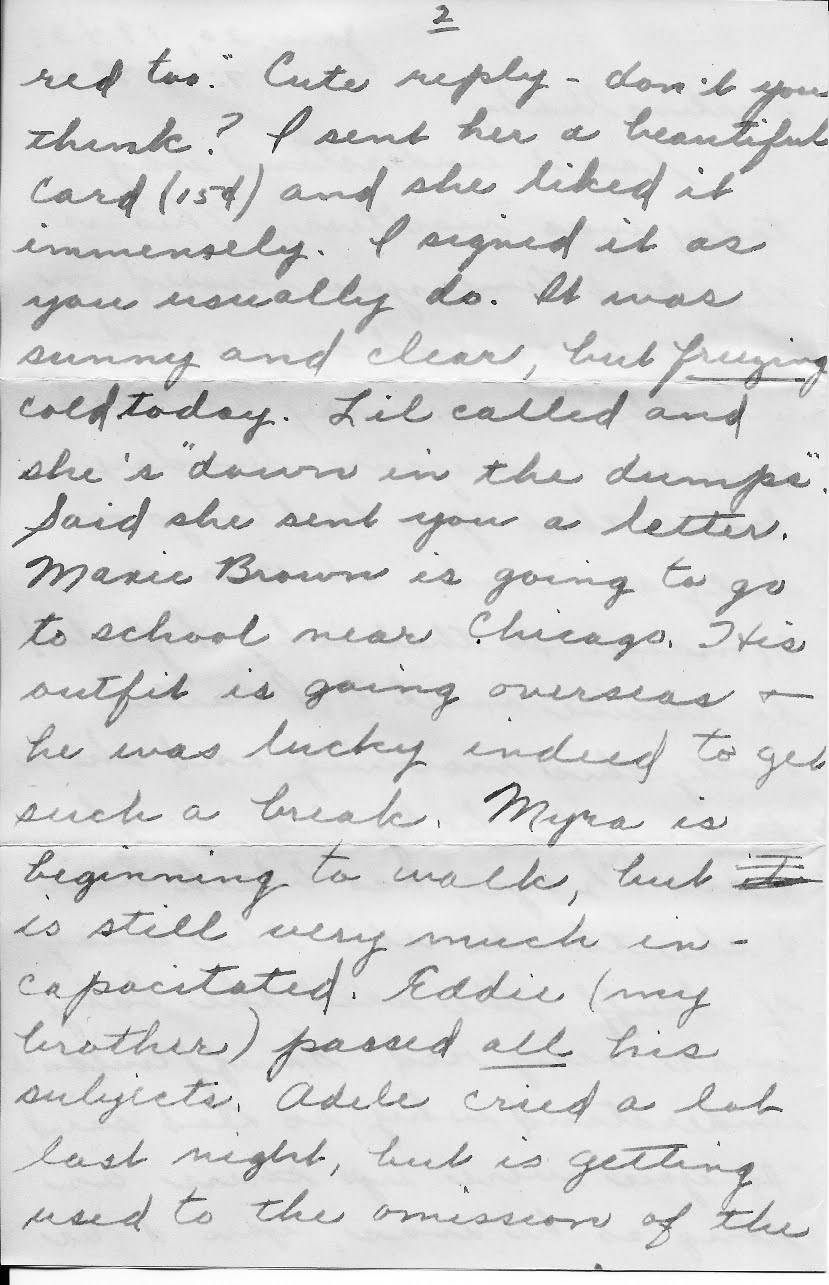 2
red too." Cute reply - don't you
think? I sent her a beautiful
card (15¢) and she liked it
immensely. I signed it as
you usually do. It was
sunny and clear, but freezing
cold today. Lil called and
she's "down in the dumps".
Said she sent you a letter.
Maxie Brown is going to go
to school near Chicago. His
outfit is going overseas +
he was lucky indeed to get
such a break. Myra is
beginning to walk, but
is still very much in-
capacitated. Eddie (my
brother) passed all his
subjects. Adele cried a lot
last night, but is getting
used to the omission of the